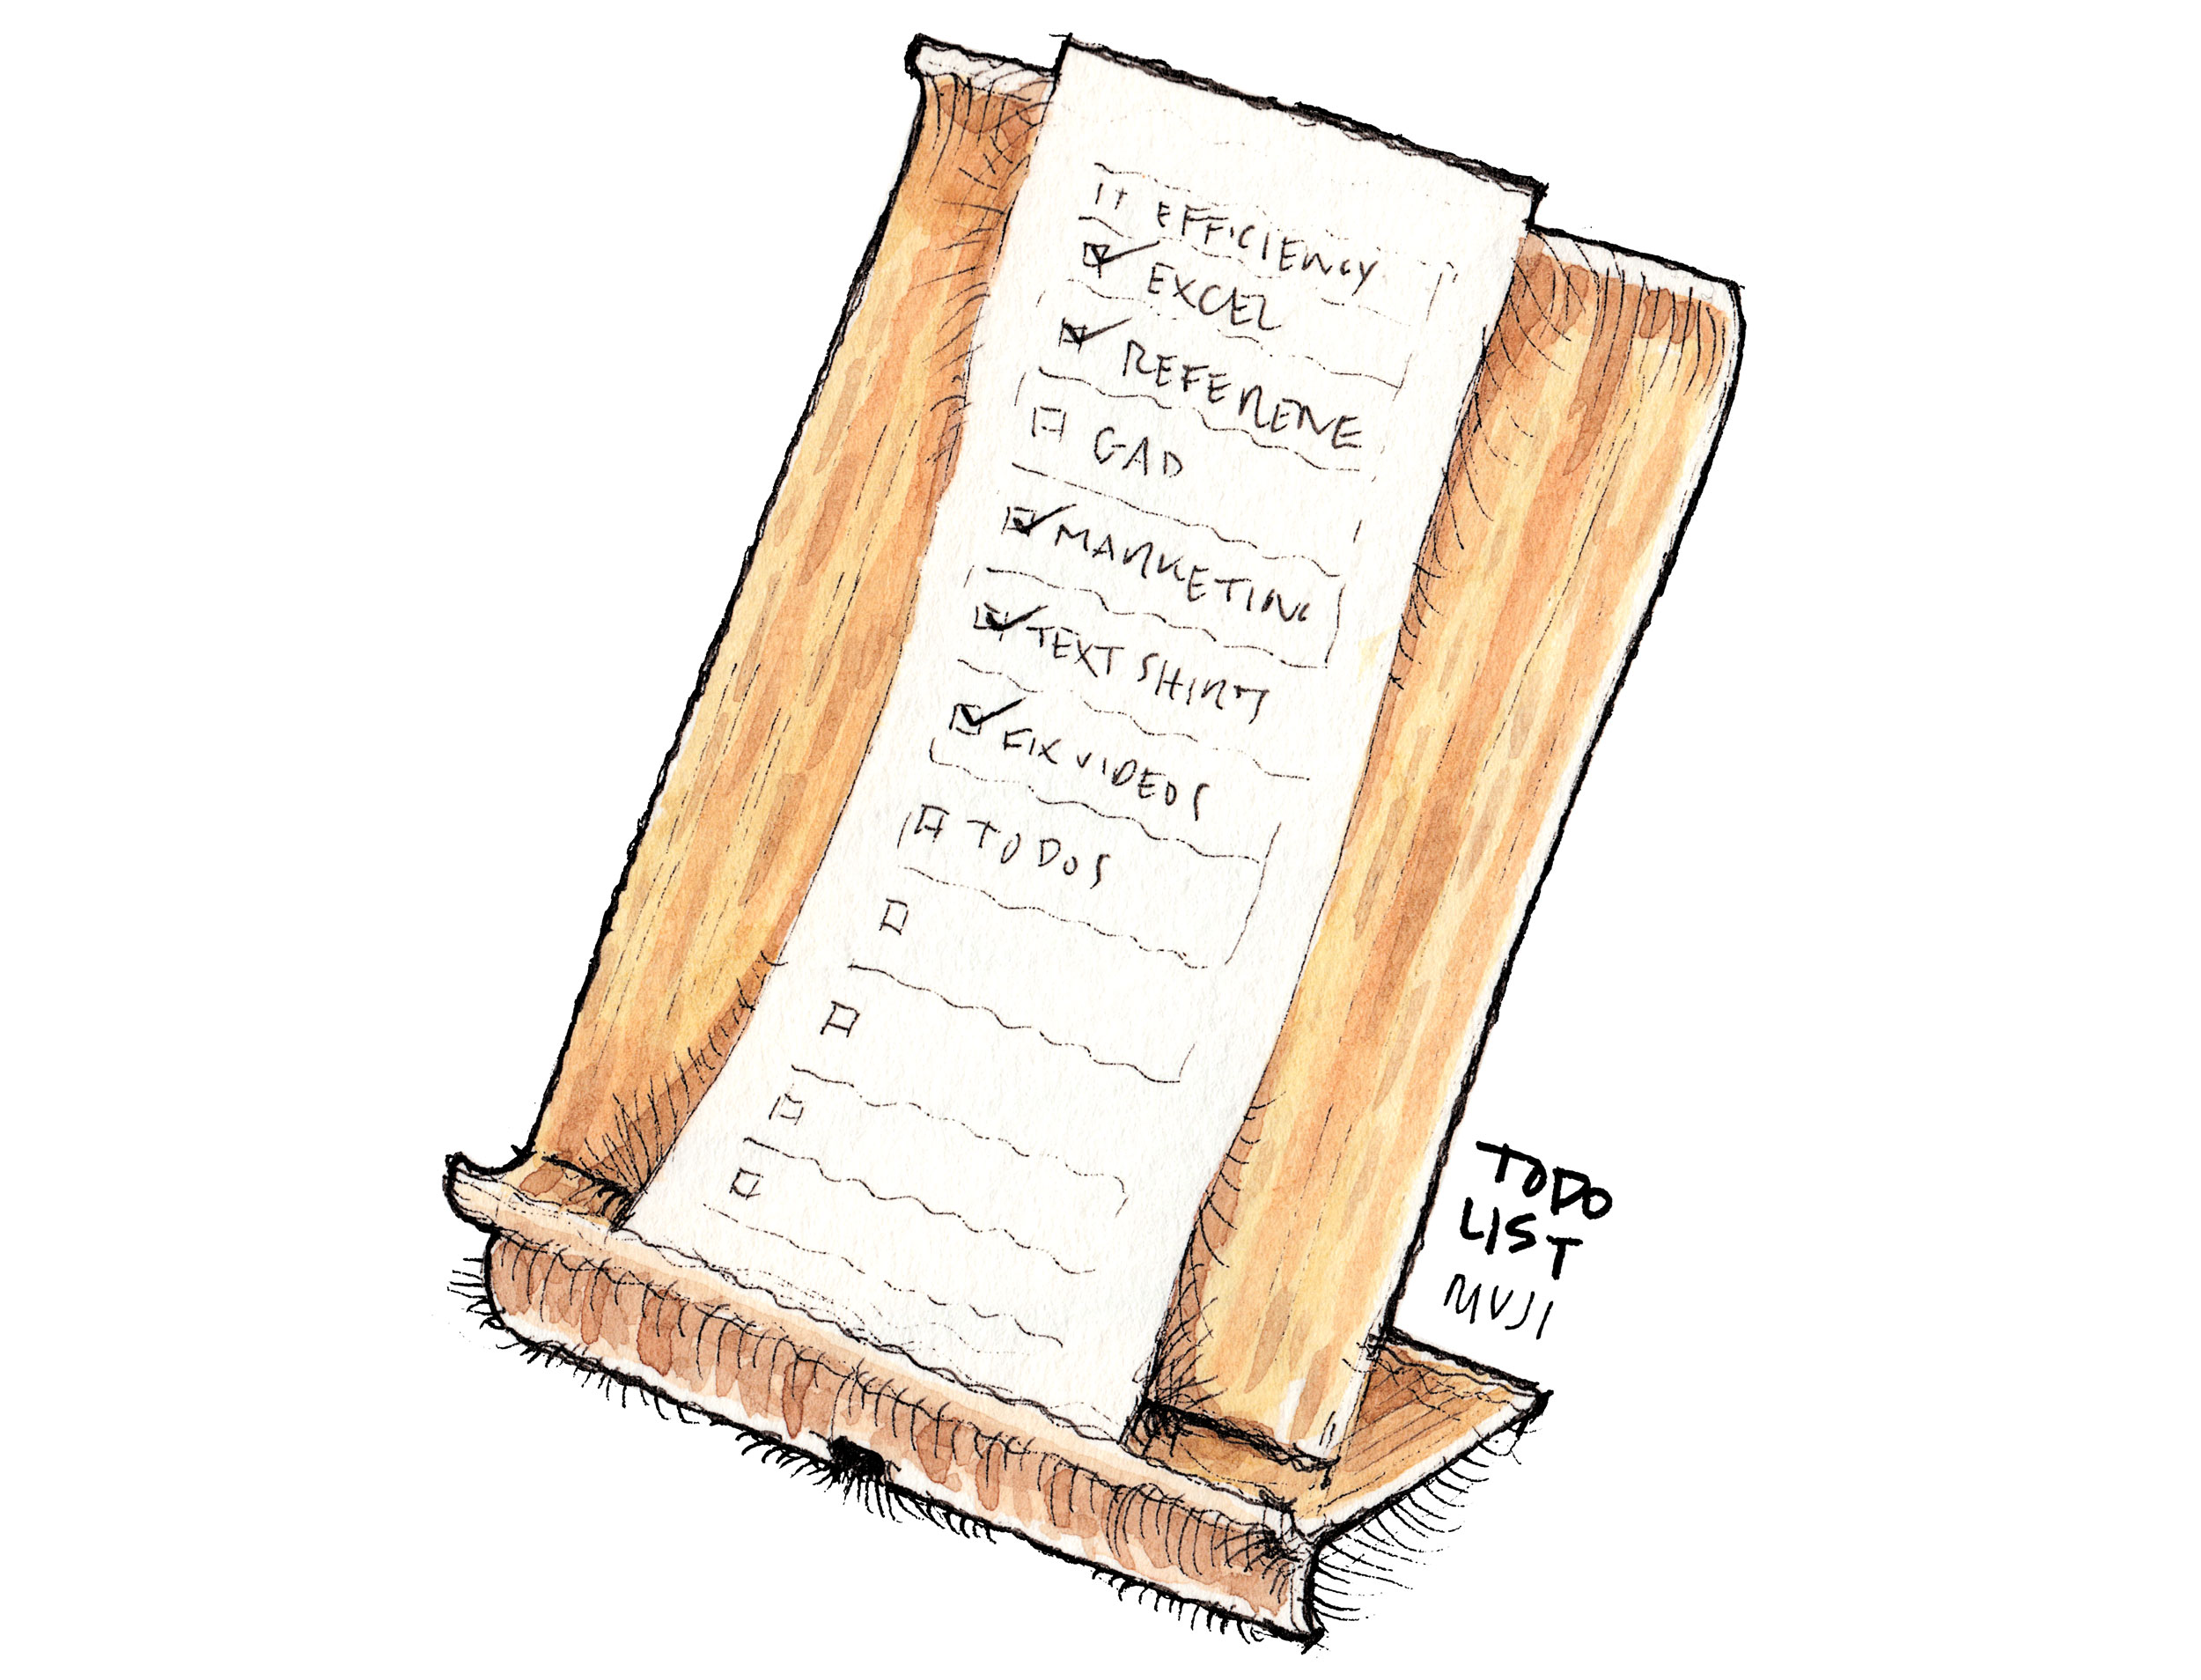 EFFICIENCY
EXCEL
REFERENE
GAD
MARKETING
TEXT SHIRT
FIX VIDEOS
TODOS
TODO
LIST
MUJI